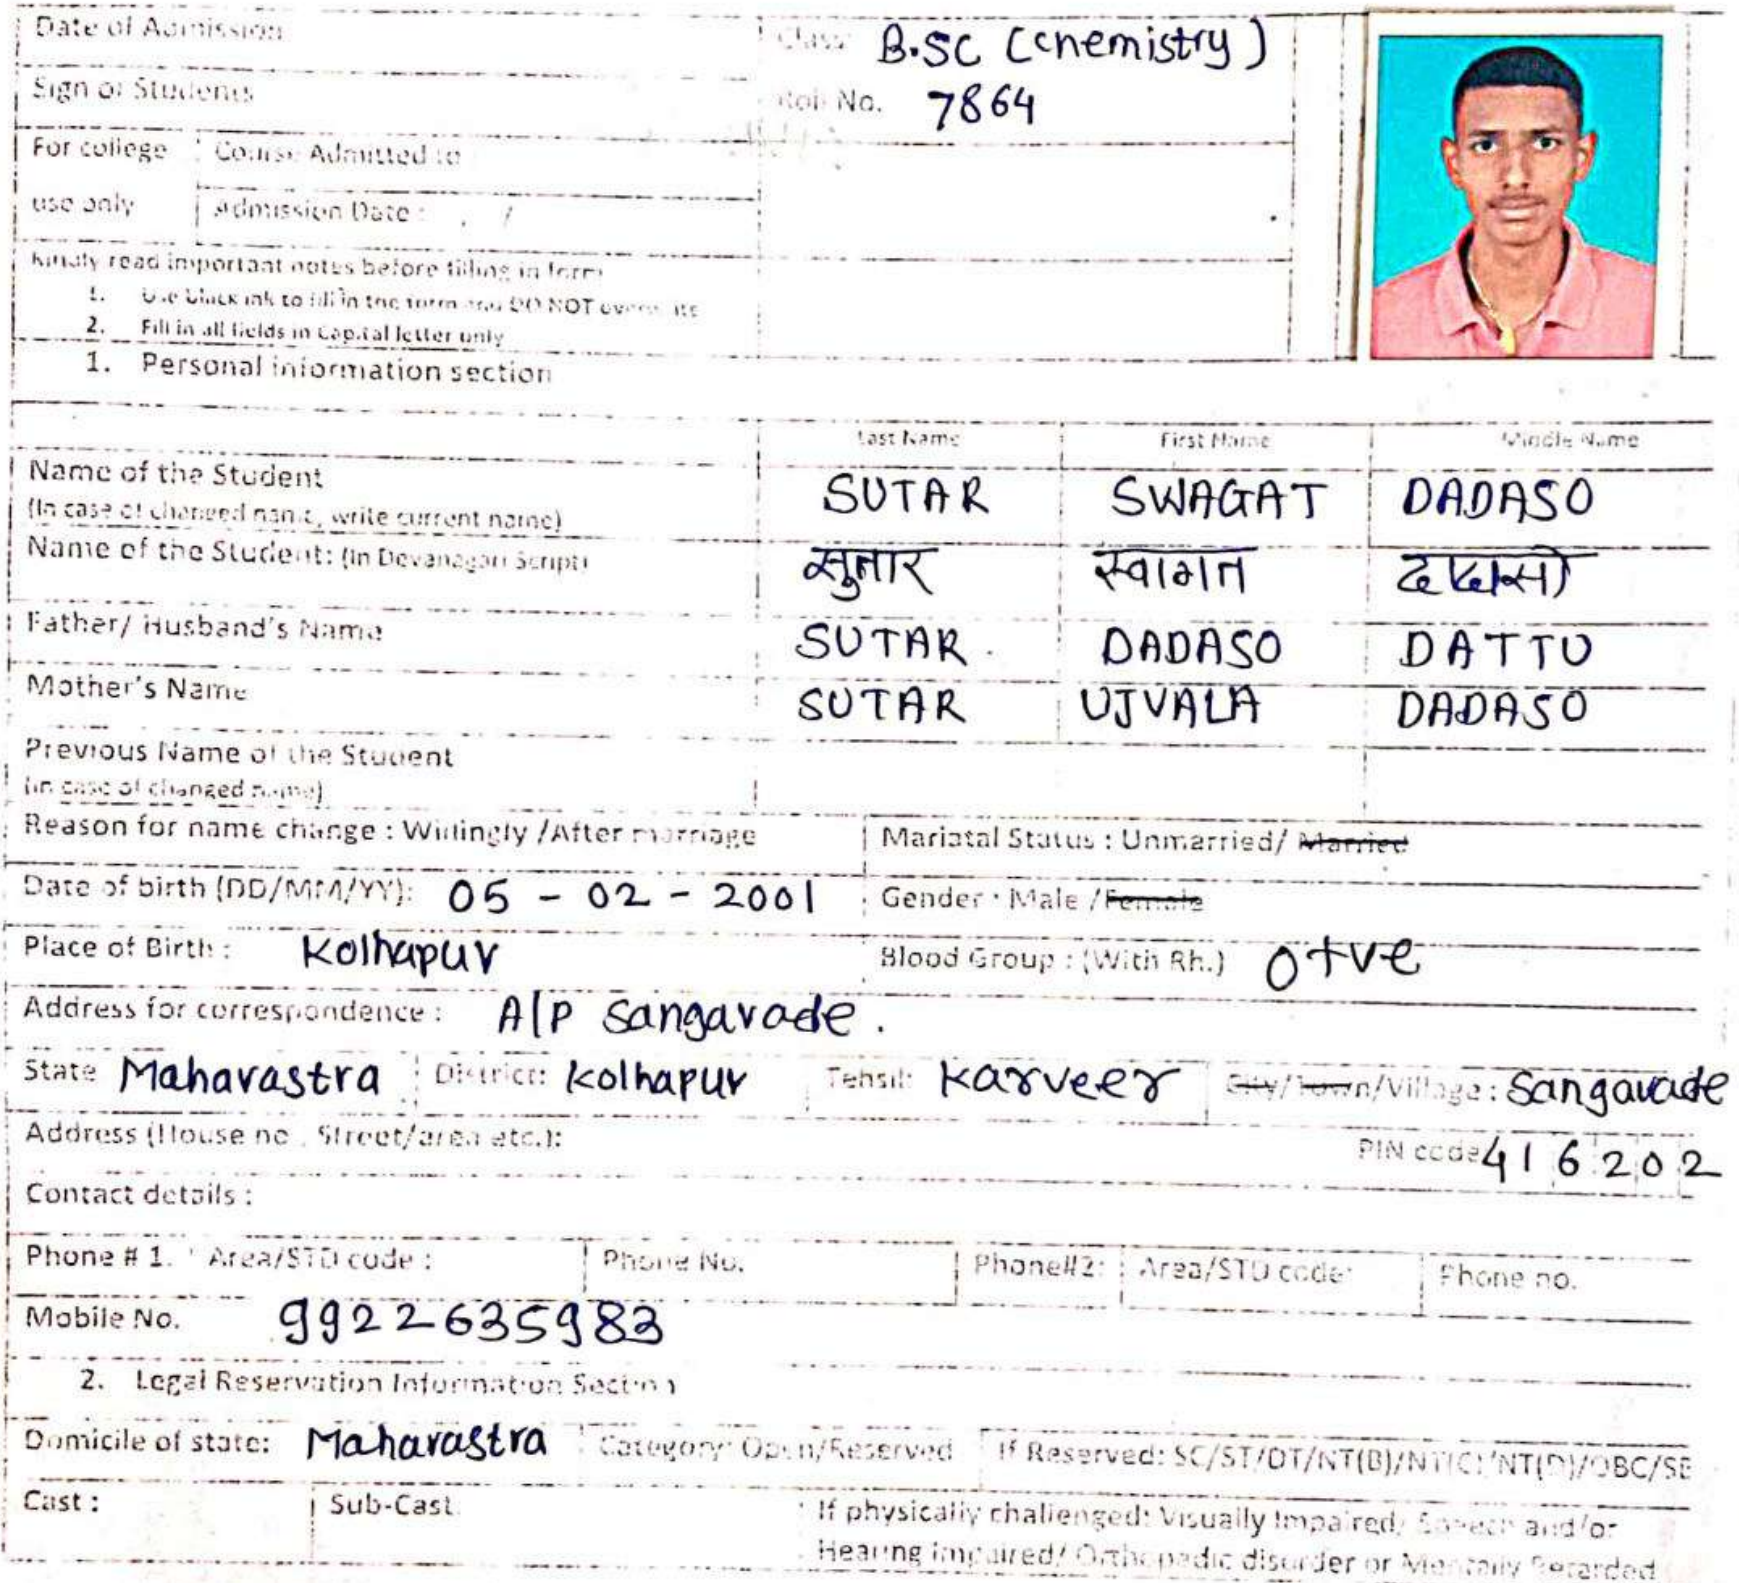 Date of Admission
Class: B.SC (chemistry)
Sign of Students
Roll No. 7864
For college use only
Course Admitted to
Admission Date : /
Kindly read important notes before filling in form
1. Use black ink to fill in the form and DO NOT overwrite
2. Fill in all fields in Capital letter only
1. Personal information section
Last Name First Name Middle Name
Name of the Student SUTAR SWAGAT DADASO
(In case of changed name, write current name)
Name of the Student: (In Devanagari Script) सुतार स्वागत ददासो
Father/ Husband's Name SUTAR. DADASO DATTU
Mother's Name SUTAR UJVALA DADASO
Previous Name of the Student
(in case of changed name)
Reason for name change : Willingly /After marriage Mariatal Status : Unmarried/ Married
Date of birth (DD/MM/YY): 05 - 02 - 2001 Gender : Male /Female
Place of Birth : Kolhapur Blood Group : (With Rh.) O+ve
Address for correspondence : A|P Sangavade.
State Maharastra District: Kolhapur Tehsil: Karveer City/Town/Village : Sangavade
Address (House no , Street/area etc.): PIN code 416202
Contact details :
Phone # 1. Area/STD code : Phone No. Phone#2: Area/STD code: Phone no.
Mobile No. 9922635983
2. Legal Reservation Information Section
Domicile of state: Maharastra Category: Open/Reserved If Reserved: SC/ST/DT/NT(B)/NT(C)/NT(D)/OBC/SB
Cast : Sub-Cast If physically challenged: Visually Impaired/ Speech and/or
Hearing impaired/ Orthopadic disorder or Mentally Retarded